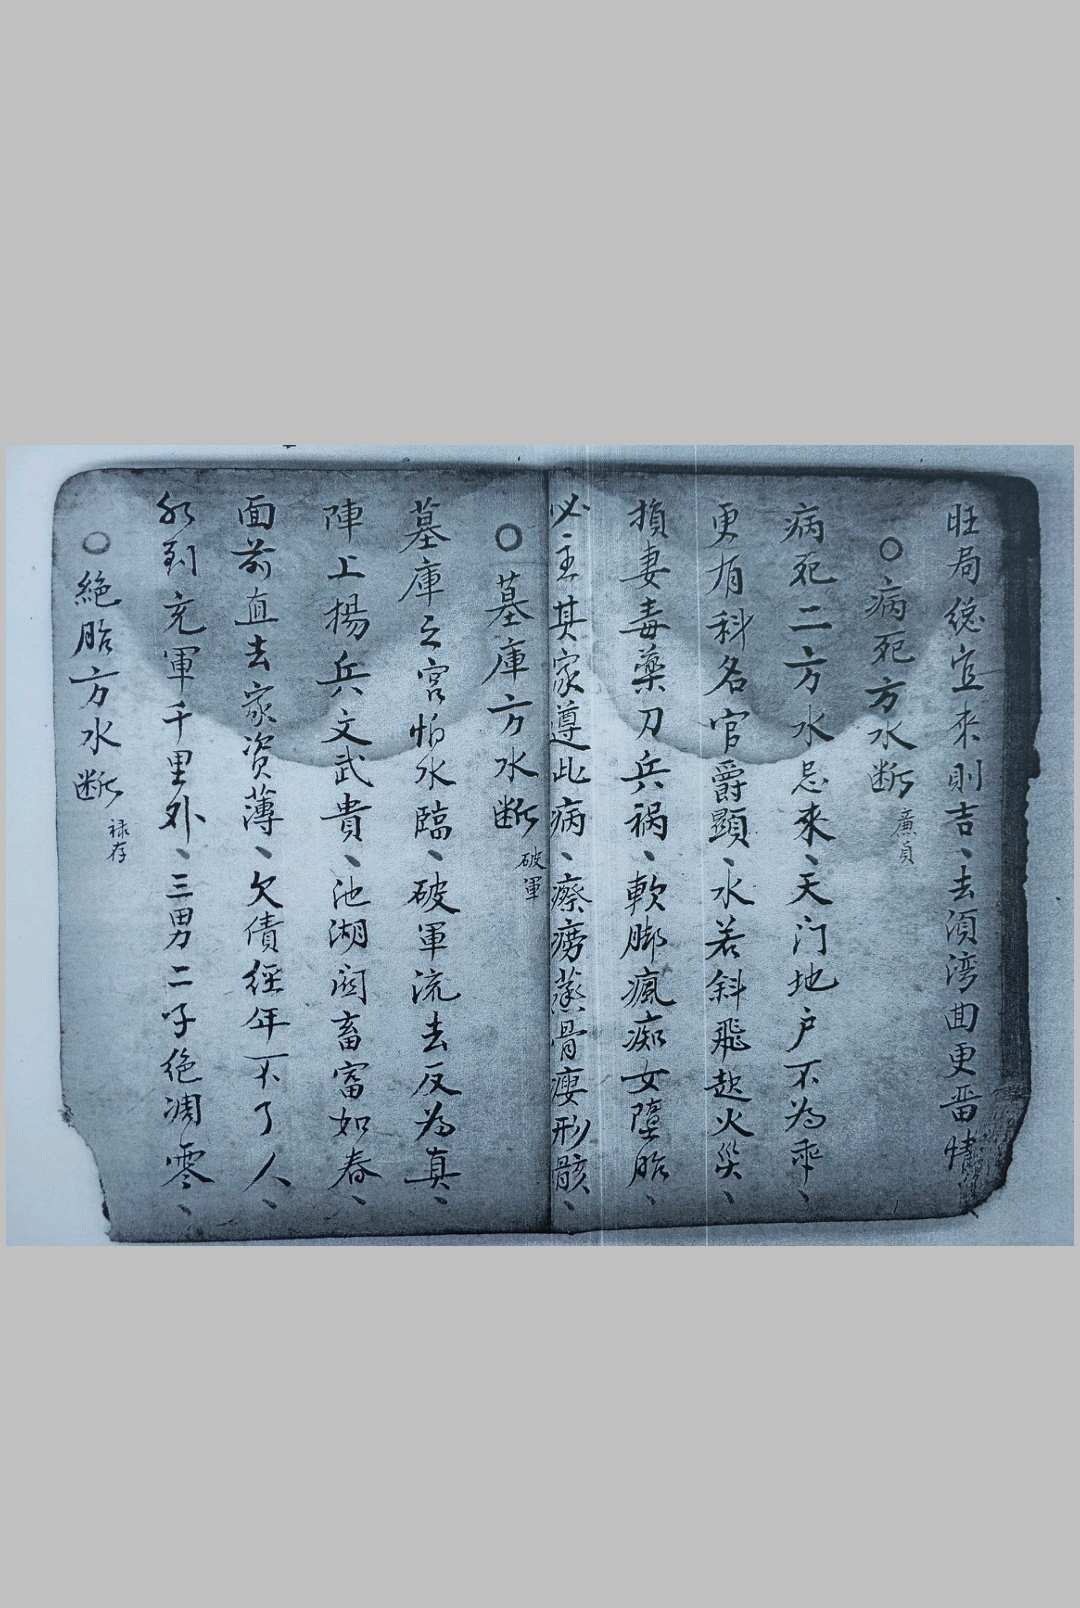 旺局総宜來則吉、去湏湾曲更畱情
○病死方水断 廉貞
病死二方水忌來、天门地户不為乖、
更有科名官爵顯、水若斜飛起火災、
損妻毒藥刀兵祸、軟脚瘋痴女墮胎、
必主其家遵此病、瘵癆蒸骨瘦形骸、
○墓庫方水断 破軍
墓庫之宮怕水臨、破軍流去反為真、
陣上揚兵文武貴、池湖阔畜富如春、
面前直去家资薄、欠債經年不了人、
水到充軍千里外、三男二子绝凋零、
○絕胎方水断 禄存